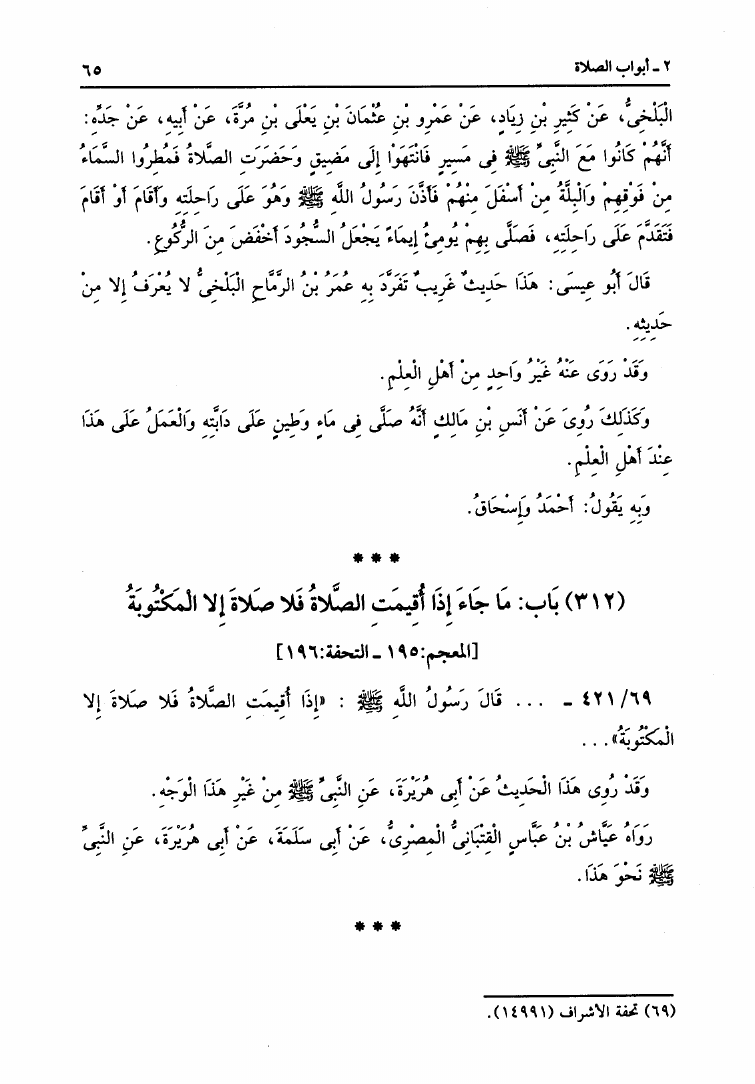 ٢ - أبواب الصلاة ٦٥
الْبَلْخِيُّ، عَنْ كَثِيرِ بْنِ زِيَادٍ، عَنْ عَمْرِو بْنِ عُثْمَانَ بْنِ يَعْلَى بْنِ مُرَّةَ، عَنْ أَبِيهِ، عَنْ جَدِّهِ:
أَنَّهُمْ كَانُوا مَعَ النَّبِيِّ ﷺ فِي مَسِيرٍ فَانْتَهَوْا إِلَى مَضِيقٍ وَحَضَرَتِ الصَّلَاةُ فَمُطِرُوا السَّمَاءُ
مِنْ فَوْقِهِمْ وَالْبِلَّةُ مِنْ أَسْفَلَ مِنْهُمْ فَأَذَّنَ رَسُولُ اللَّهِ ﷺ وَهُوَ عَلَى رَاحِلَتِهِ وَأَقَامَ أَوْ أَقَامَ
فَتَقَدَّمَ عَلَى رَاحِلَتِهِ، فَصَلَّى بِهِمْ يُومِئُ إِيمَاءً يَجْعَلُ السُّجُودَ أَخْفَضَ مِنَ الرُّكُوعِ.
قَالَ أَبُو عِيسَى: هَذَا حَدِيثٌ غَرِيبٌ تَفَرَّدَ بِهِ عُمَرُ بْنُ الرَّمَّاحِ الْبَلْخِيُّ لا يُعْرَفُ إِلا مِنْ
حَدِيثِهِ.
وَقَدْ رَوَى عَنْهُ غَيْرُ وَاحِدٍ مِنْ أَهْلِ الْعِلْمِ.
وَكَذَلِكَ رُوِيَ عَنْ أَنَسِ بْنِ مَالِكٍ أَنَّهُ صَلَّى فِي مَاءٍ وَطِينٍ عَلَى دَابَّتِهِ وَالْعَمَلُ عَلَى هَذَا
عِنْدَ أَهْلِ الْعِلْمِ.
وَبِهِ يَقُولُ: أَحْمَدُ وَإِسْحَاقُ.
* * *
(٣١٢) بَاب: مَا جَاءَ إِذَا أُقِيمَتِ الصَّلَاةُ فَلا صَلَاةَ إِلا الْمَكْتُوبَةُ
[المعجم:١٩٥ - التحفة:١٩٦]
٤٢١/٦٩ - ... قَالَ رَسُولُ اللَّهِ ﷺ : «إِذَا أُقِيمَتِ الصَّلَاةُ فَلا صَلَاةَ إِلا
الْمَكْتُوبَةُ»...
وَقَدْ رُوِيَ هَذَا الْحَدِيثُ عَنْ أَبِي هُرَيْرَةَ، عَنِ النَّبِيِّ ﷺ مِنْ غَيْرِ هَذَا الْوَجْهِ.
رَوَاهُ عَيَّاشُ بْنُ عَبَّاسٍ الْقِتْبَانِيُّ الْمِصْرِيُّ، عَنْ أَبِي سَلَمَةَ، عَنْ أَبِي هُرَيْرَةَ، عَنِ النَّبِيِّ
ﷺ نَحْوَ هَذَا.
* * *
(٦٩) تحفة الأشراف (١٤٩٩١).